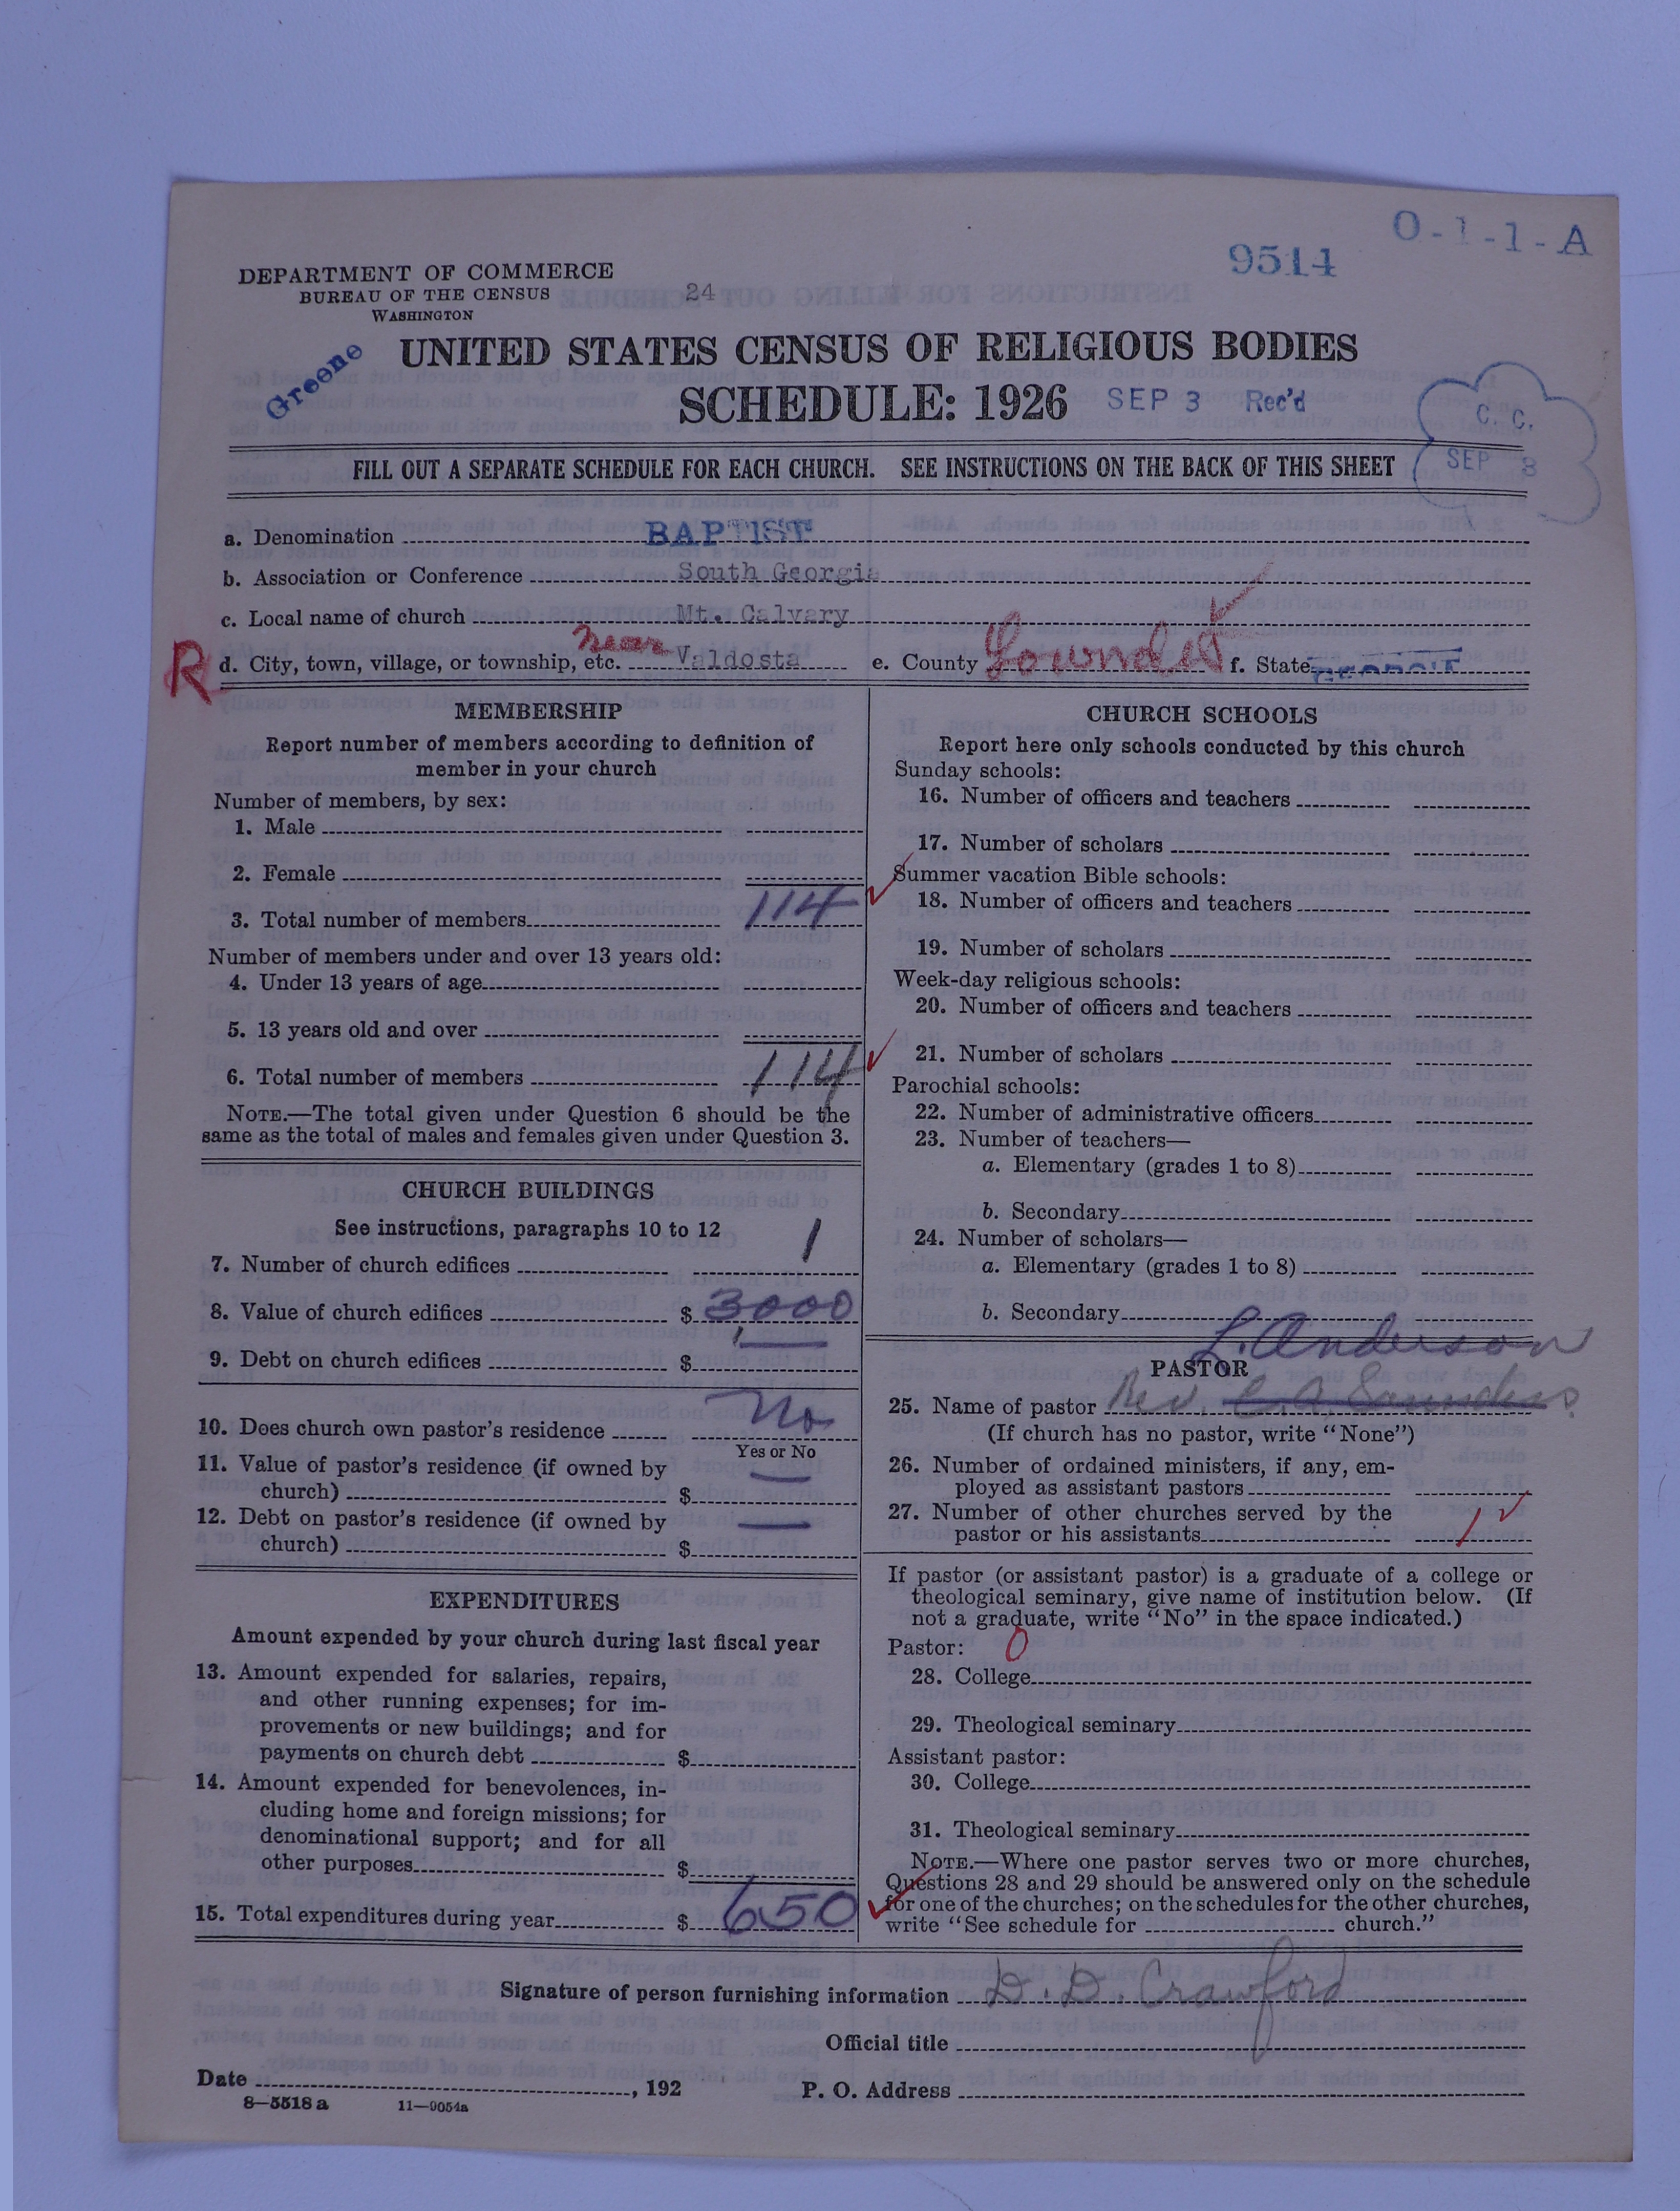 O-1-1-A
9514
DEPARTMENT OF COMMERCE
BUREAU OF THE CENSUS
WASHINGTON
24
Greene
UNITED STATES CENSUS OF RELIGIOUS BODIES
SCHEDULE: 1926 SEP 3 Rec'd
C. C.
SEP 8
FILL OUT A SEPARATE SCHEDULE FOR EACH CHURCH. SEE INSTRUCTIONS ON THE BACK OF THIS SHEET
a. Denomination BAPTIST
b. Association or Conference South Georgia
c. Local name of church Mt. Calvary
R d. City, town, village, or township, etc. near Valdosta e. County Lowndes f. State
MEMBERSHIP
Report number of members according to definition of
member in your church
Number of members, by sex:
1. Male
2. Female
3. Total number of members 114
Number of members under and over 13 years old:
4. Under 13 years of age
5. 13 years old and over
6. Total number of members 114
NOTE.—The total given under Question 6 should be the
same as the total of males and females given under Question 3.
CHURCH BUILDINGS
See instructions, paragraphs 10 to 12
7. Number of church edifices 1
8. Value of church edifices $ 3000
9. Debt on church edifices $
10. Does church own pastor's residence No
Yes or No
11. Value of pastor's residence (if owned by
church) $ —
12. Debt on pastor's residence (if owned by
church) $ —
EXPENDITURES
Amount expended by your church during last fiscal year
13. Amount expended for salaries, repairs,
and other running expenses; for im-
provements or new buildings; and for
payments on church debt $
14. Amount expended for benevolences, in-
cluding home and foreign missions; for
denominational support; and for all
other purposes $
15. Total expenditures during year $ 650
CHURCH SCHOOLS
Report here only schools conducted by this church
Sunday schools:
16. Number of officers and teachers
17. Number of scholars
Summer vacation Bible schools:
18. Number of officers and teachers
19. Number of scholars
Week-day religious schools:
20. Number of officers and teachers
21. Number of scholars
Parochial schools:
22. Number of administrative officers
23. Number of teachers—
a. Elementary (grades 1 to 8)
b. Secondary
24. Number of scholars—
a. Elementary (grades 1 to 8)
b. Secondary
L. Anderson
PASTOR
25. Name of pastor Rev. C. A. Saunders
(If church has no pastor, write "None")
26. Number of ordained ministers, if any, em-
ployed as assistant pastors
27. Number of other churches served by the
pastor or his assistants 1
If pastor (or assistant pastor) is a graduate of a college or
theological seminary, give name of institution below. (If
not a graduate, write "No" in the space indicated.)
Pastor: 0
28. College
29. Theological seminary
Assistant pastor:
30. College
31. Theological seminary
NOTE.—Where one pastor serves two or more churches,
Questions 28 and 29 should be answered only on the schedule
for one of the churches; on the schedules for the other churches,
write "See schedule for church."
Signature of person furnishing information D. D. Crawford
Official title
Date , 192 P. O. Address
8—5518a 11—9054a